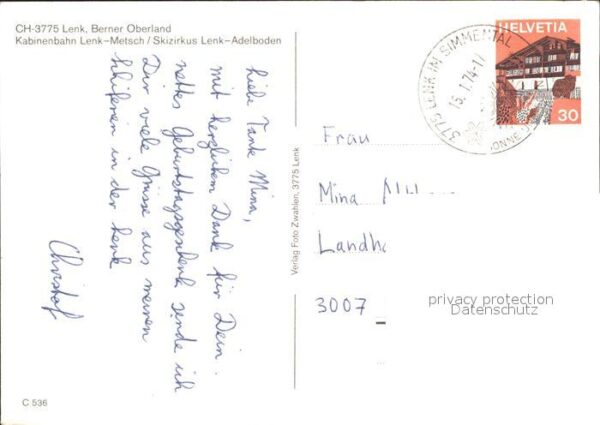 CH-3775 Lenk, Berner Oberland
Kabinenbahn Lenk–Metsch / Skizirkus Lenk–Adelboden
liebe Tante Mina,
mit herzlichem Dank für Dein
nettes Geburtstagsgeschenk sende ich
Dir viele Grüsse aus meinen
Skiferien in der Lenk
Christof
Verlag Foto Zwahlen, 3775 Lenk
HELVETIA
30
3775 LENK IM SIMMENTAL
Frau
Mina
Landh
3007
privacy protection
Datenschutz
C 536